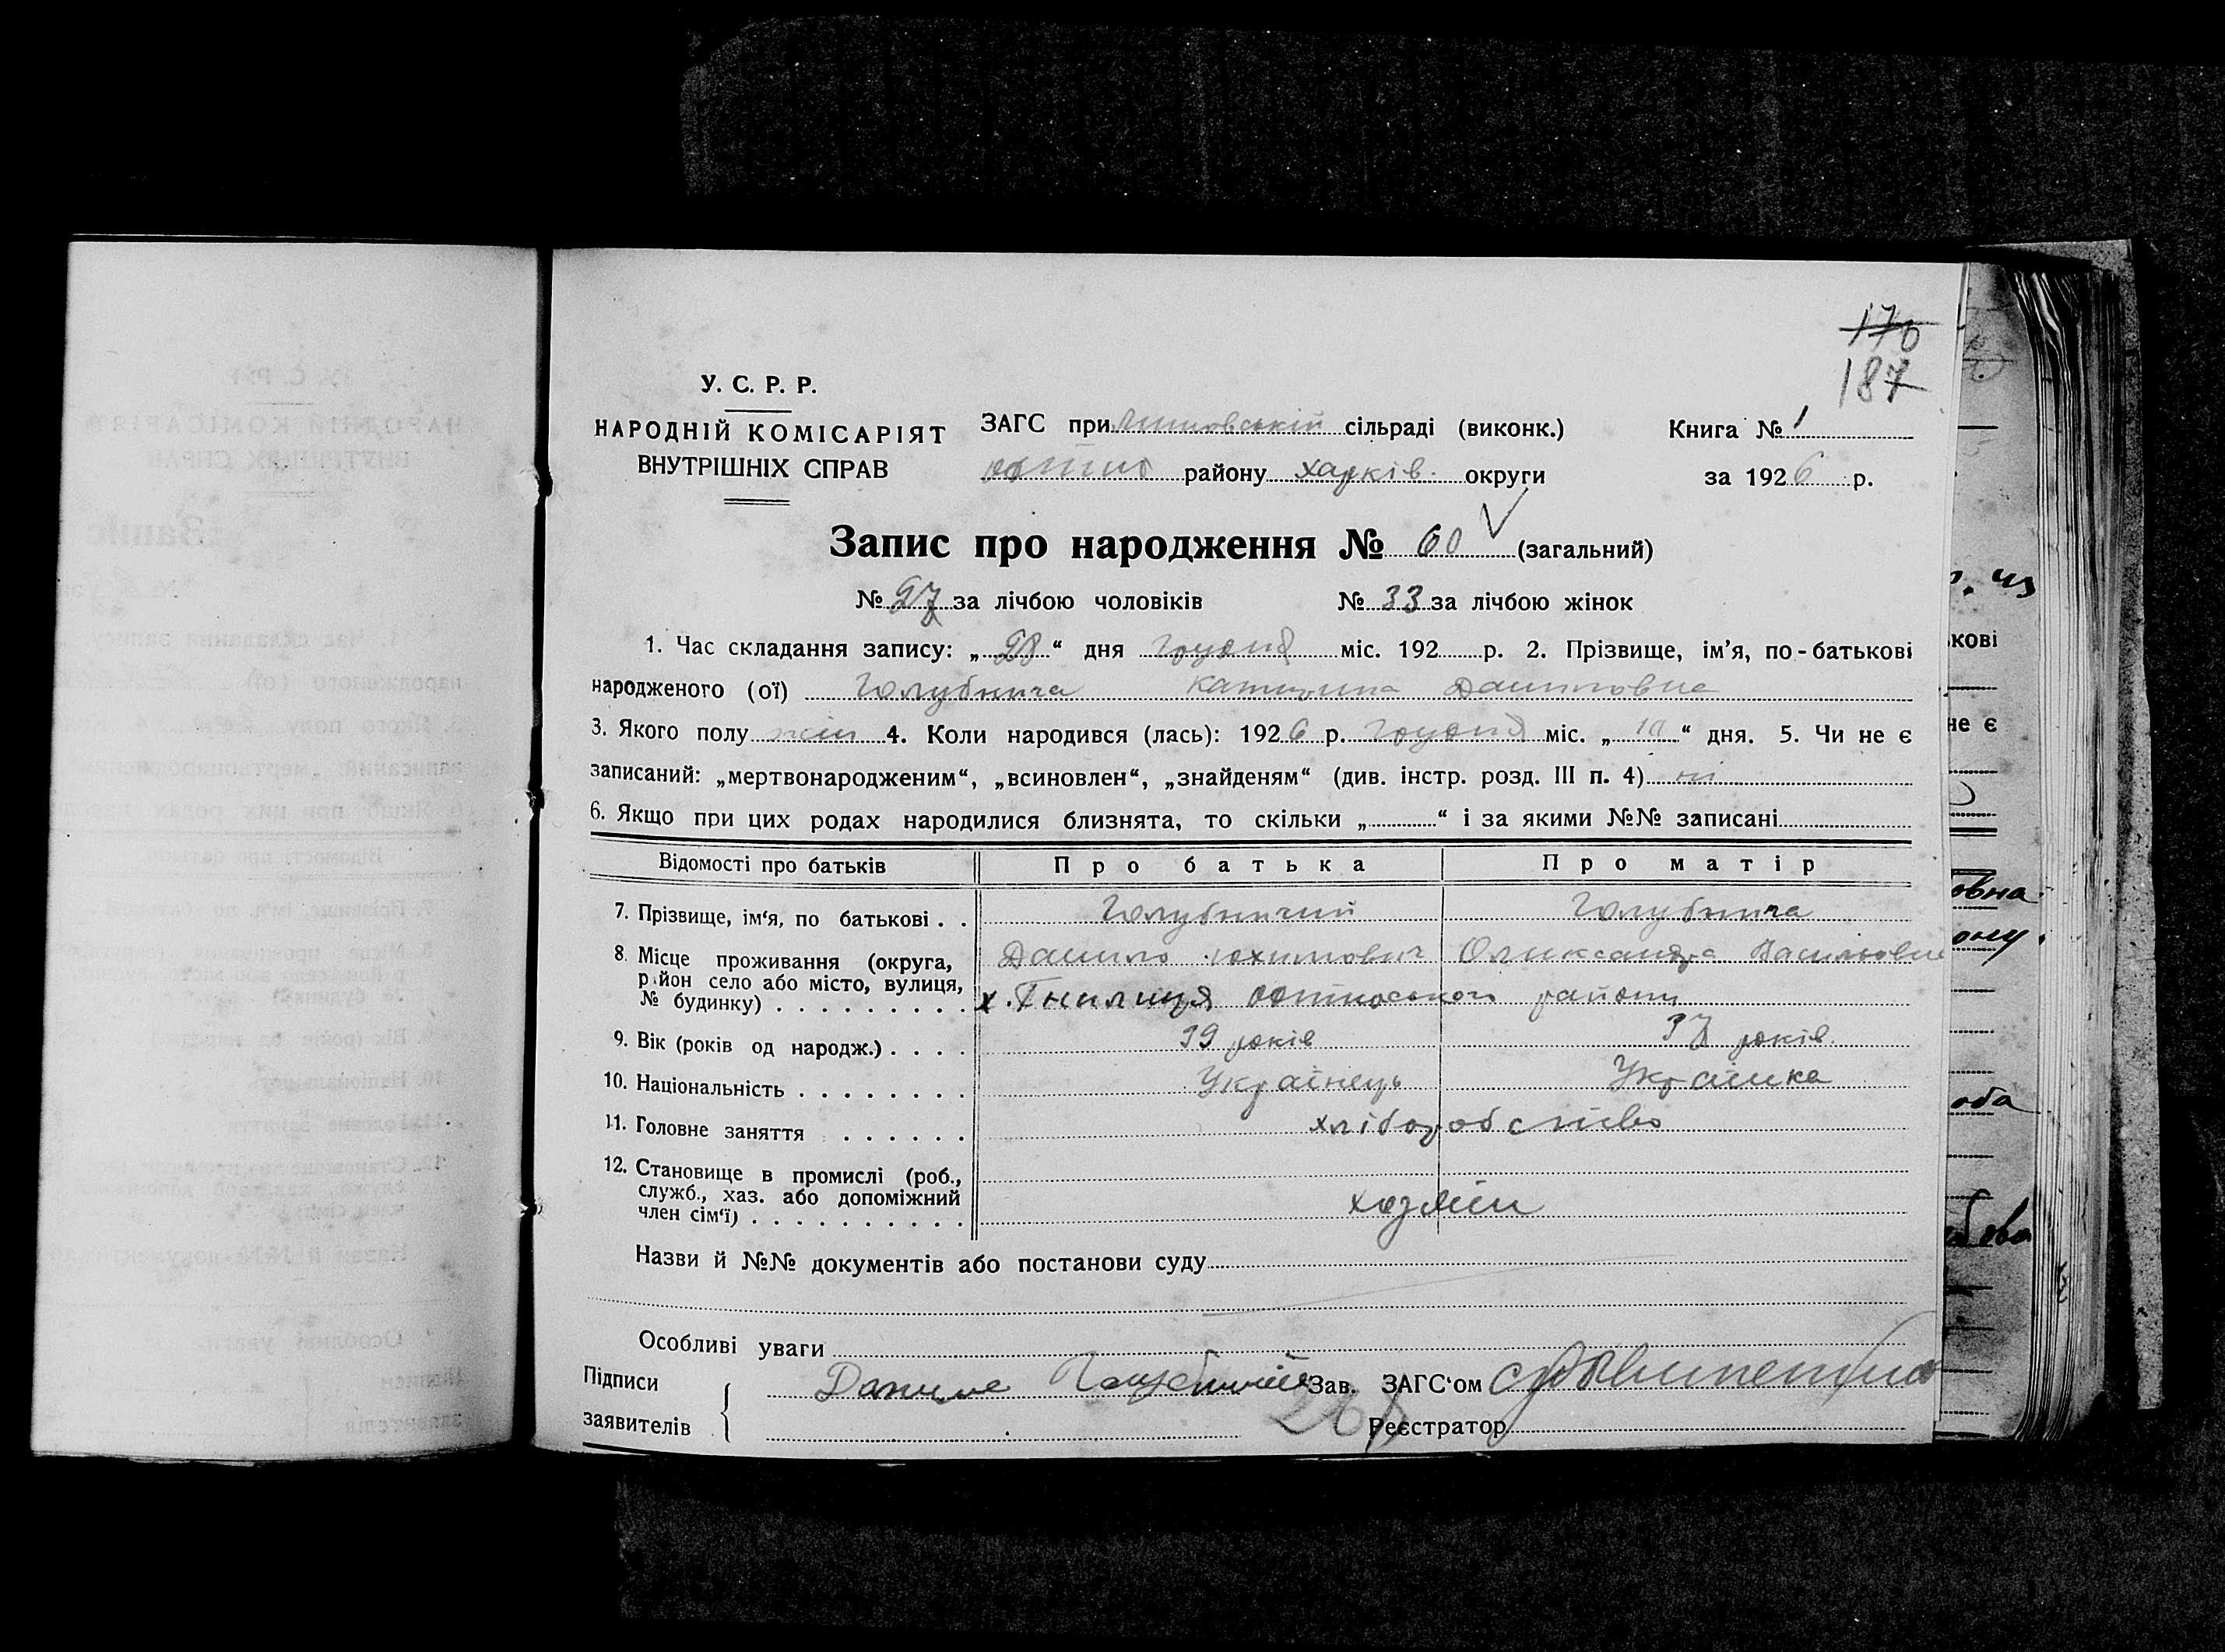 170
187
У. С. Р. Р.
НАРОДНІЙ КОМІСАРІЯТ
ВНУТРІШНІХ СПРАВ
ЗАГС при сільраді (виконк.)
району Харків. округи
Книга № 1
за 1926 р.
Запис про народження № 60 (загальний)
№ 27 за лічбою чоловіків № 33 за лічбою жінок
1. Час складання запису: „28“ дня грудня міс. 192 р. 2. Прізвище, ім’я, по-батькові
народженого (ої) Голубнича Катерина Даниловна
3. Якого полу жін 4. Коли народився (лась): 1926 р. грудня міс. „10“ дня. 5. Чи не є
записаний: „мертвонародженим“, „всиновлен“, „знайденям“ (див. інстр. розд. III п. 4) ні
6. Якщо при цих родах народилися близнята, то скільки „ “ і за якими №№ записані
Відомості про батьків Про батька Про матір
7. Прізвище, ім‘я, по батькові . . Голубничий Голубнича
8. Місце проживання (округа, Данило Юхимович Олександра Василовна
район село або місто, вулиця,
№ будинку) . . . . . . . . . х. Гнилиця району
9. Вік (років од народж.) . . . . 39 років 37 років.
10. Національність . . . . . . . . Українець Українка
11. Головне заняття . . . . . . хліборобство
12. Становище в промислі (роб.,
служб., хаз. або допоміжний
член сім‘ї) . . . . . . . . . . хозяін
Назви й №№ документів або постанови суду
Особливі уваги
Підписи Данило Голубничий Зав. ЗАГС‘ом
заявителів Реєстратор